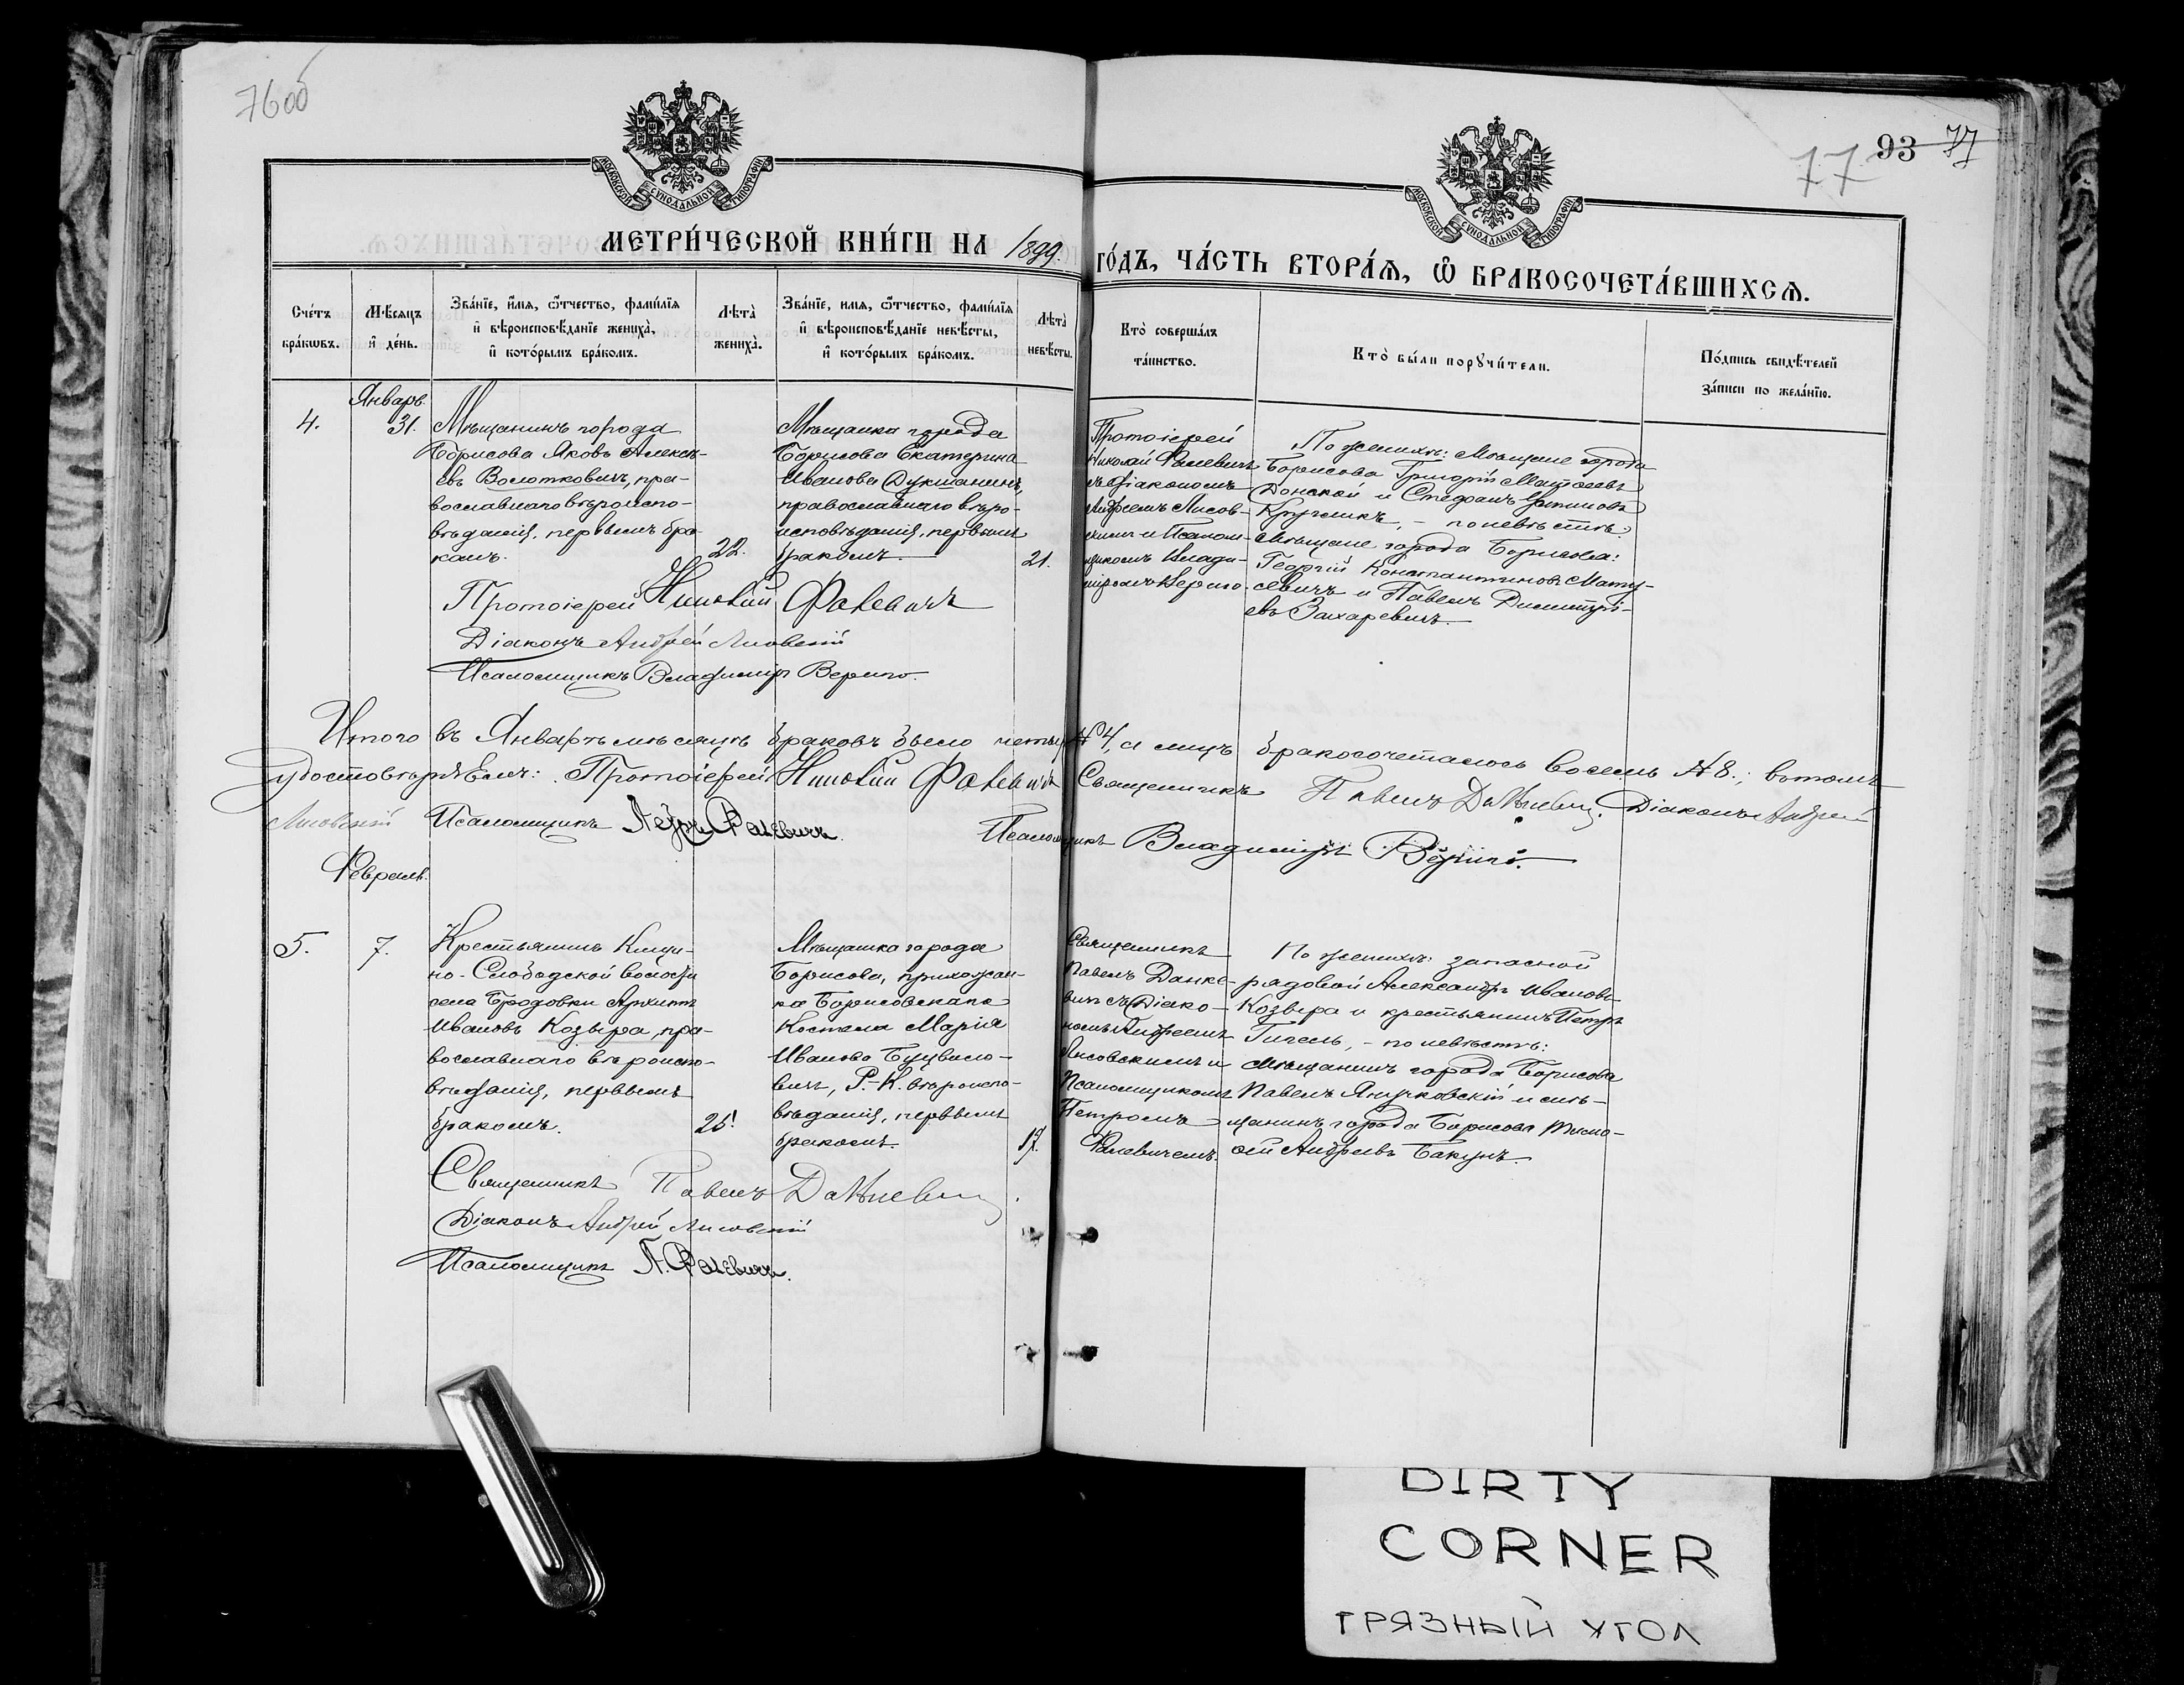 76 об
77 93 77
МОСКОВСКОЙ СУНОДАЛЬНОЙ ТИПОГРАФІИ
МОСКОВСКОЙ СУНОДАЛЬНОЙ ТИПОГРАФІИ
МЕТРИ́ЧЕСКОЙ КНИ́ГИ НА 1899. ГО́ДЪ, ЧА́СТЬ ВТОРА́Ѧ, Ѽ БРАКОСОЧЕТА́ВШИХСѦ.
Сче́тъ
бра́кѡвъ.
Мѣ́сяцъ
и де́нь.
Зва́нїе, и́мя, ѻ́тчество, фами́лїя
и вѣроисповѣ́данїе жениха̀,
и кото́рымъ бра́комъ.
Лѣта̀
жениха̀.
Зва́нїе, имя, ѻ́тчество, фами́лїя
и вѣроисповѣ́данїе невѣ́сты,
и кото́рымъ бра́комъ.
Лѣта̀
невѣ́сты.
Кто̀ соверша́лъ
та́инство.
Кто̀ бы́ли порꙋчи́тели.
По́дпись свидѣ́телей
за́писи по жела́нїю.
Январь
4.
31.
Мѣщанинъ города
Борисова Яковъ Алексѣ-
евъ Волотковичъ, пра-
вославнаго вѣроиспо-
вѣданія, первымъ бра-
комъ.
22.
Мѣщанка города
Борисова Екатерина
Иванова
православнаго вѣро-
исповѣданія, первымъ
бракомъ.
21.
Протоіерей
Николай Фалевичъ
съ Діакономъ
Андреемъ Лисов-
скимъ и Псалом-
щикомъ Влади-
міромъ Вериго
По женихѣ: Мѣщане города
Борисова Григорій Матѳеевъ
Донской и Стефанъ Устиновъ
Кручникъ, - по невѣстѣ:
Мѣщане города Борисова:
Георгій Константиновъ Мату-
севичъ и Павелъ Димитрі-
евъ Захаревичъ.
Протоіерей Николай Фалевичъ
Діаконъ Андрей Лисовскій
Псаломщикъ Владиміръ Вериго.
Итого въ Январѣ мѣсяцѣ браковъ было четыре № 4, а лицъ бракосочеталось восемь № 8.; въ томъ
удостовѣряемъ: Протоіерей Николай Фалевичъ Священникъ Павелъ Данкевичъ. Діаконъ Андрей
Лисовскій Псаломщикъ Петръ Фалевичъ. Псаломщикъ Владиміръ Вериго.
Февраль.
5.
7.
Крестьянинъ
но-Слободской волости
села Бродовки Архипъ
Ивановъ Козыра, пра-
вославнаго вѣроиспо-
вѣданія, первымъ
бракомъ.
25.
Мѣщанка города
Борисова, прихожан-
ка Борисовскаго
Костела Марія
Иванова Буцвило-
вичъ, Р.-К. вѣроиспо-
вѣданія, первымъ
бракомъ.
19.
Священникъ
Павелъ Данке-
вичъ съ Діако-
номъ Андреемъ
Лисовскимъ и
Псаломщикомъ
Петромъ
Фалевичемъ.
По женихѣ: запасной
рядовой Александръ Ивановъ
Козыра и крестьянинъ Петръ
Гигель, - по невѣстѣ:
Мѣщанинъ города Борисова
Павелъ Янучковскій и мѣ-
щанинъ города Борисова Тимо-
ѳей Андреевъ Бакунъ.
Священникъ Павелъ Данкевичъ
Діаконъ Андрей Лисовскій
Псаломщикъ П. Фалевичъ.
DIRTY
CORNER
ГРЯЗНЫЙ УГОЛ